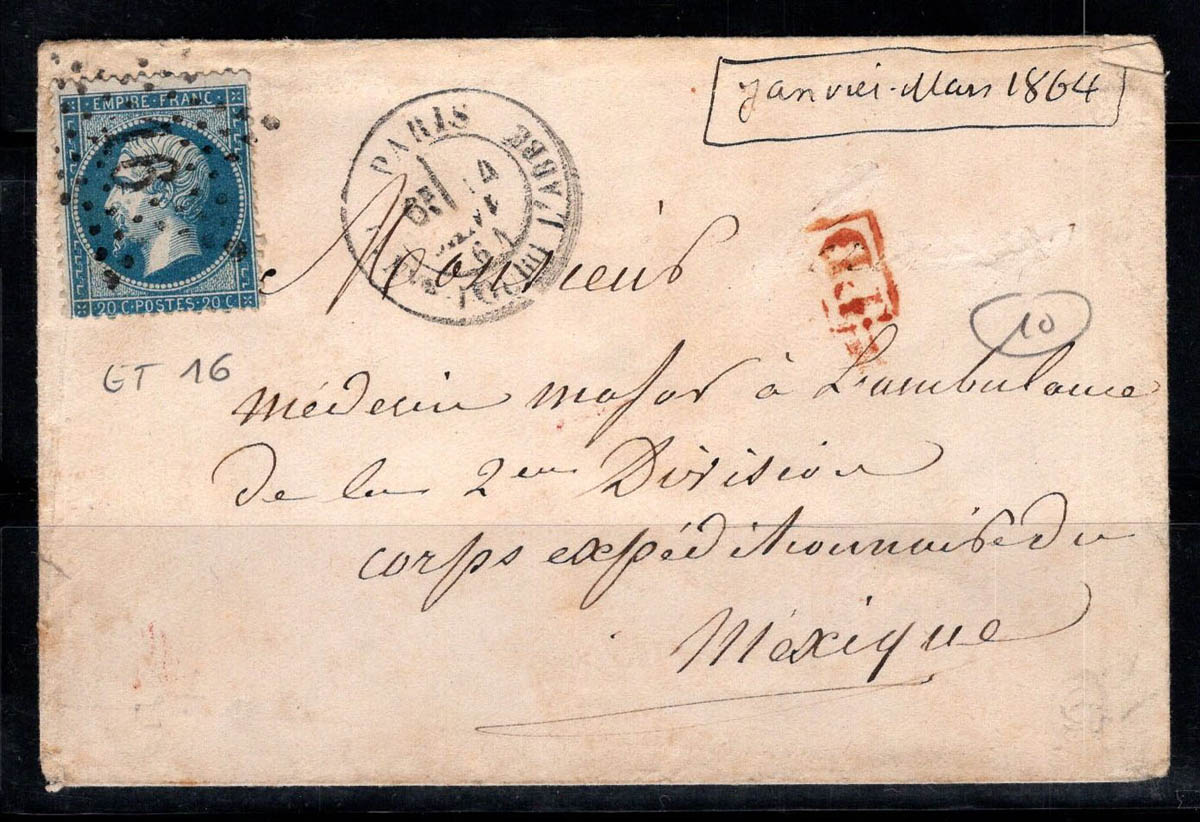 EMPIRE·FRANC
20 C·POSTES·20 C
PARIS
R. DU F. ABBE
64
Janvier-Mars 1864
P.D.
10
GT 16
Monsieur
médecin major à L'ambulance
de la 2em Division
corps expéditionnaire du
Mexique